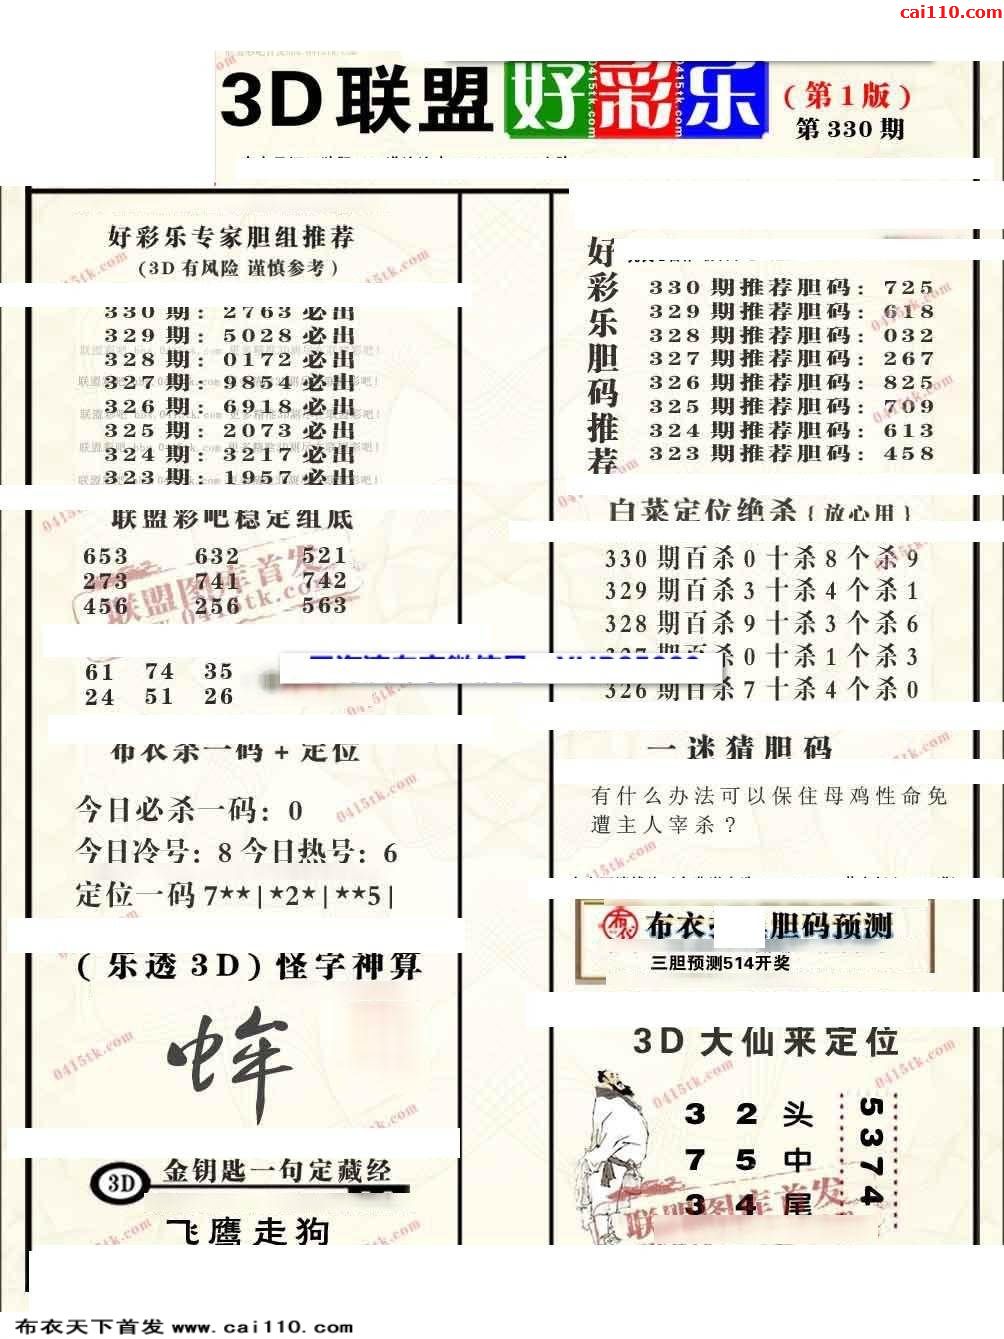 cai110.com
3D联盟 好彩乐 (第1版)
第330期
好彩乐专家胆组推荐
(3D有风险 谨慎参考)
330期: 2763必出
329期: 5028必出
328期: 0172必出
327期: 9854必出
326期: 6918必出
325期: 2073必出
324期: 3217必出
323期: 1957必出
联盟彩吧稳定组底
653 632 521
273 741 742
456 256 563
61 74 35
24 51 26
布衣杀一码+定位
今日必杀一码: 0
今日冷号: 8 今日热号: 6
定位一码 7**|*2*|**5|
(乐透3D)怪字神算
3D 金钥匙一句定藏经
飞鹰走狗
好彩乐胆码推荐
330期推荐胆码: 725
329期推荐胆码: 618
328期推荐胆码: 032
327期推荐胆码: 267
326期推荐胆码: 825
325期推荐胆码: 709
324期推荐胆码: 613
323期推荐胆码: 458
白菜定位绝杀{放心用}
330期百杀0十杀8个杀9
329期百杀3十杀4个杀1
328期百杀9十杀3个杀6
327期百杀0十杀1个杀3
326期百杀7十杀4个杀0
一迷猜胆码
有什么办法可以保住母鸡性命免
遭主人宰杀?
布衣 胆码预测
三胆预测514开奖
3D大仙来定位
3 2头
7 5中
3 4尾
5374
联盟图库首发
0415tk.com
布衣天下首发 www.cai110.com